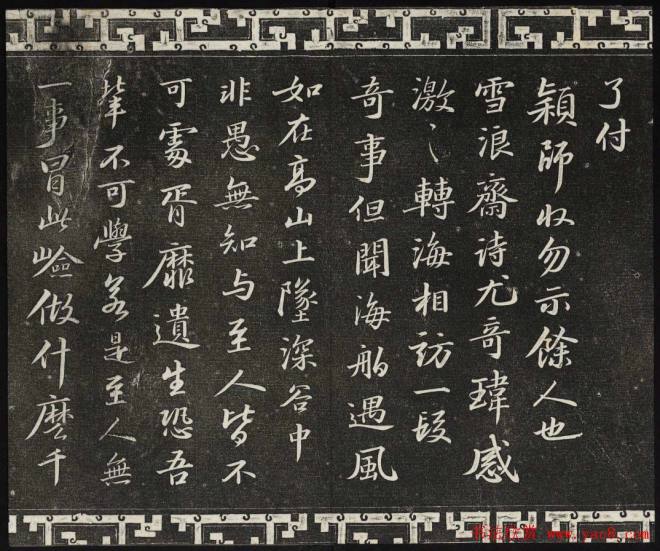 了付
穎師收勿示餘人也
雪浪齋诗尤奇瑋感
激〻轉海相訪一段
奇事但聞海舶遇風
如在高山上墜深谷中
非愚無知与至人皆不
可處胥靡遺生恐吾
輩不可學若是至人無
一事冒此嶮做什麽千
书法欣赏 www.yac8.com